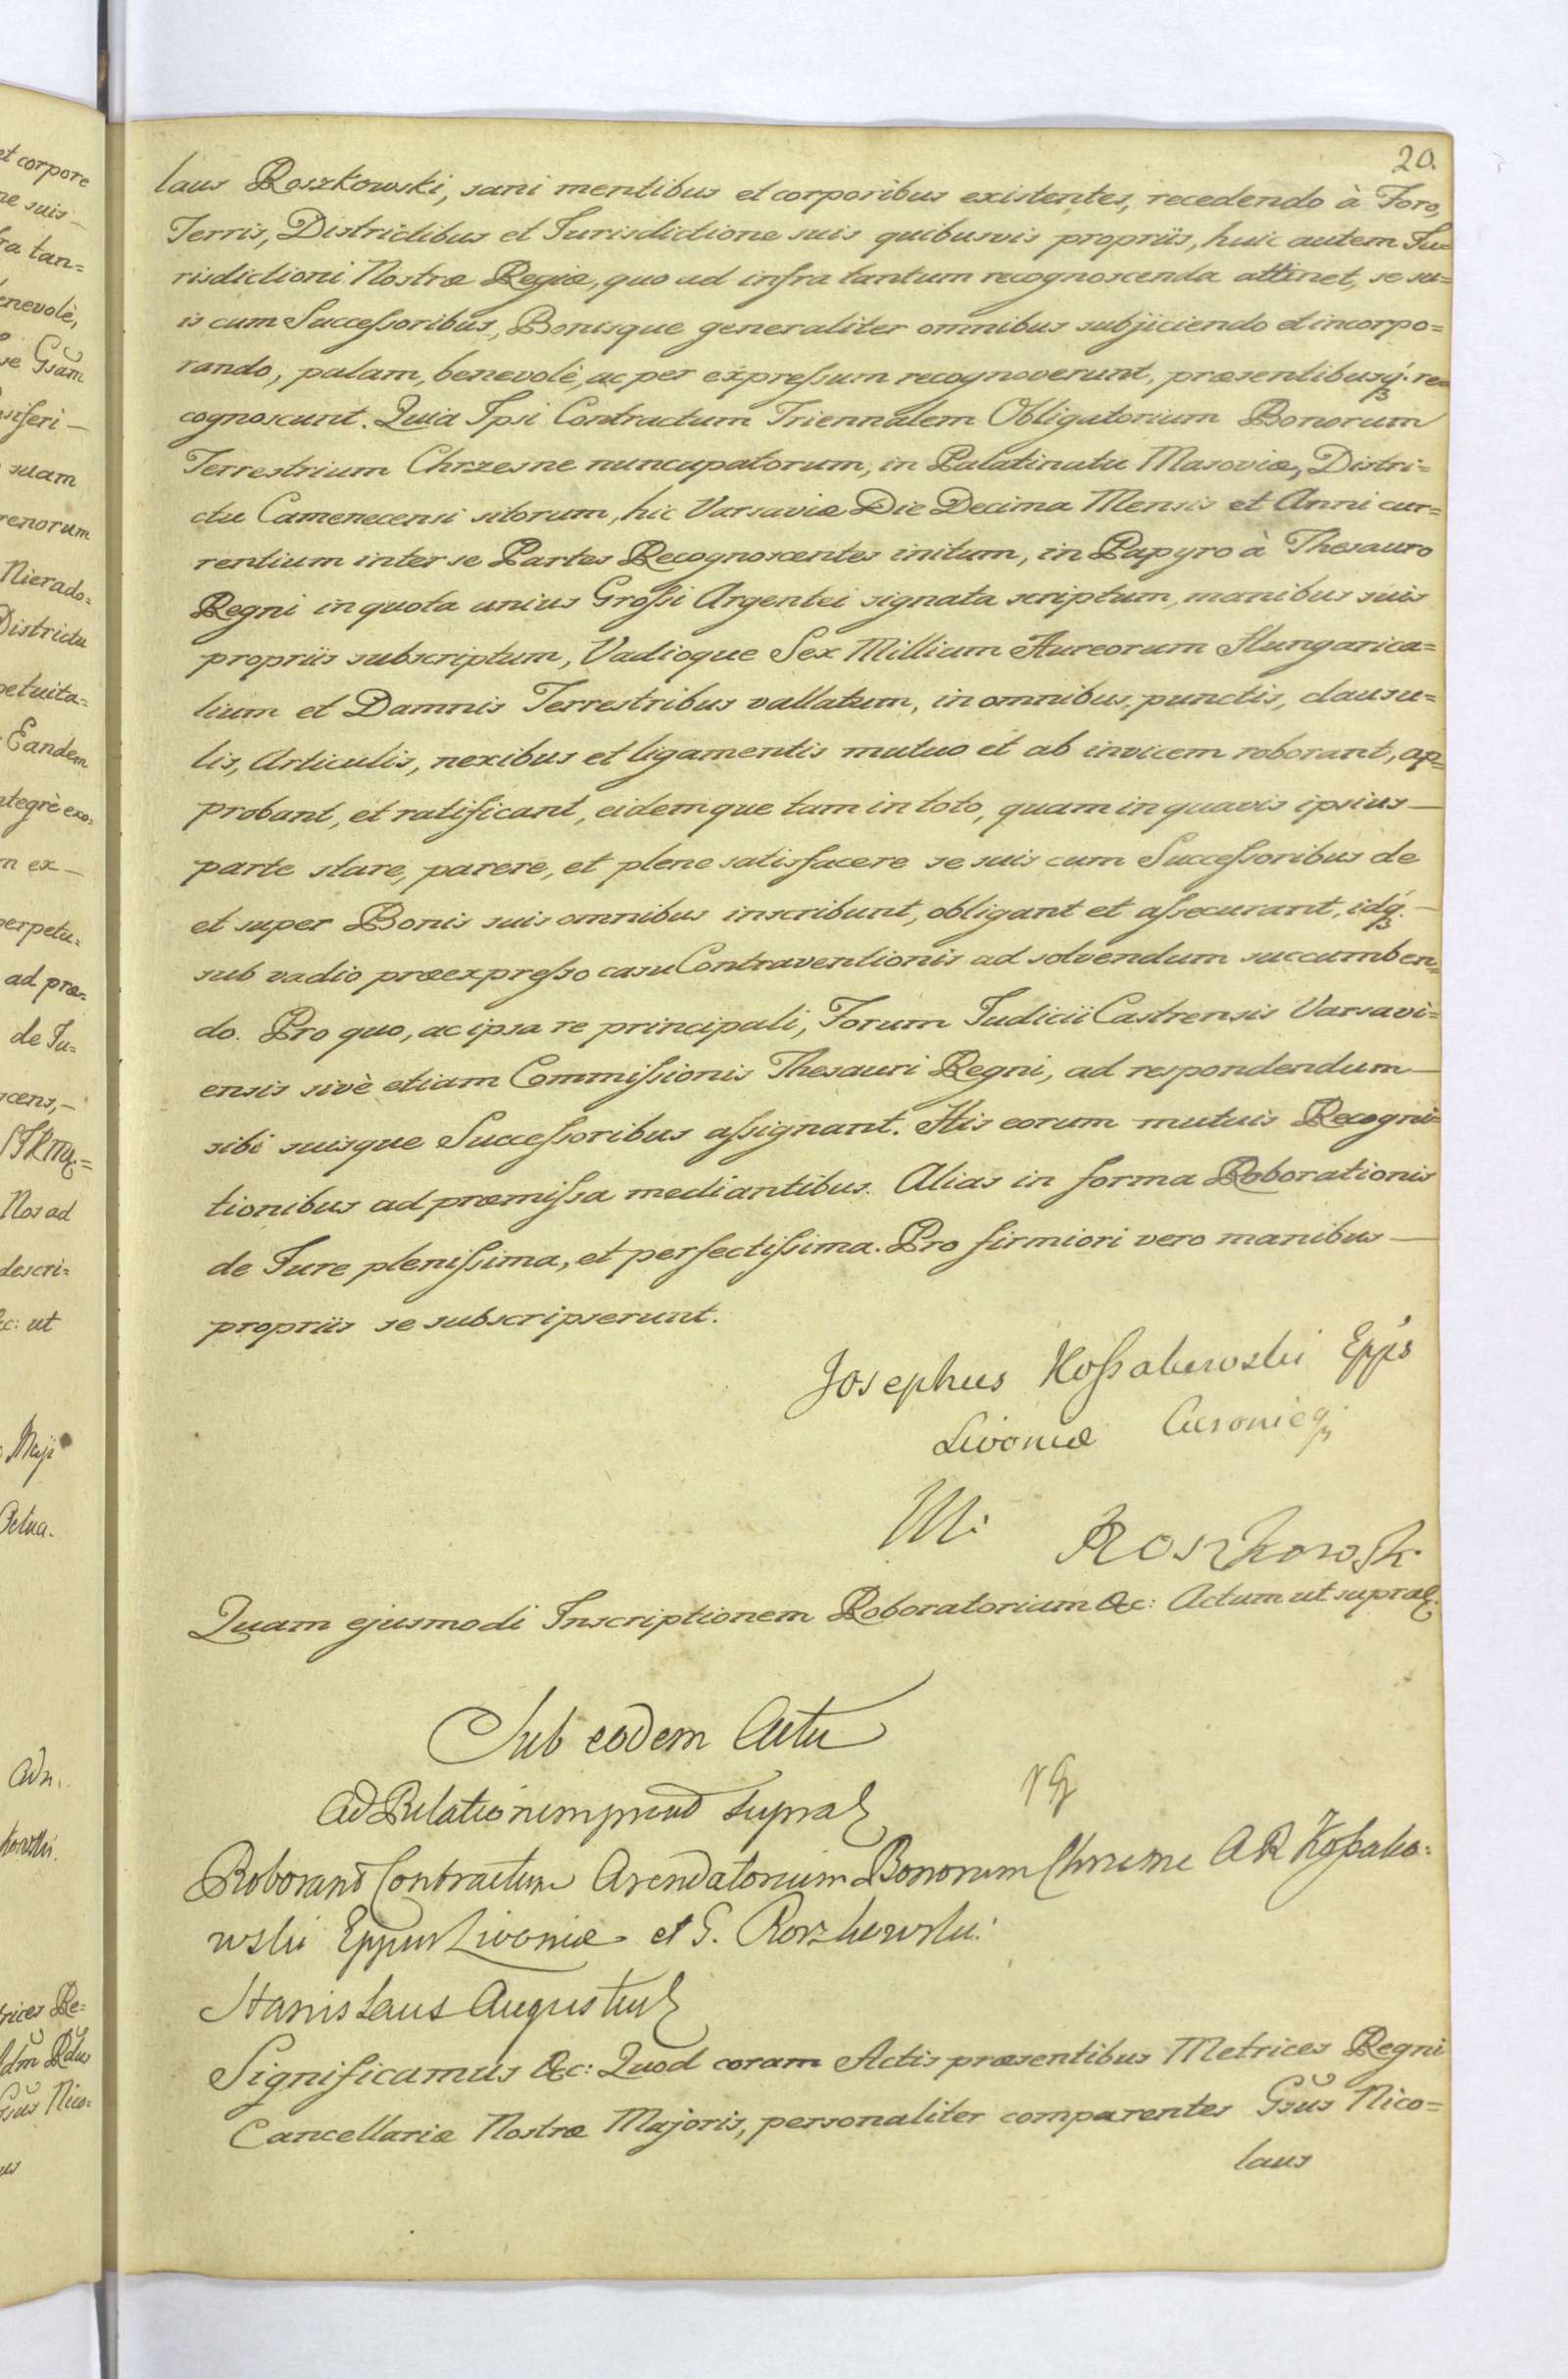 20.
laus Roszkowski, sani mentibus et corporibus existentes, recedendo à Foro,
Terris, Districtibus et Jurisdictione suis quibusvis propriis, huic autem Ju=
risdictioni Nostræ Regiæ, quo ad infra tantum recognoscenda attinet, se su=
is cum Successoribus, Bonisque generaliter omnibus subjiciendo et incorpo=
rando, palam, benevolè, ac per expressum recognoverunt, præsentibusq́. re=
cognoscunt. Quia Ipsi Contractum Triennalem Obligatorium Bonorum
Terrestrium Chrzesne nuncupatorum, in Palatinatu Masoviæ, Distri=
ctu Camenecensi sitorum, hic Varsaviæ Die Decima Mensis et Anni cur=
rentium inter se Partes Recognoscentes initum, in Papyro à Thesauro
Regni in quota unius Grossi Argentei signata scriptum, manibus suis
propriis subscriptum, Vadioque Sex Millium Aureorum Hungarica=
lium et Damnis Terrestribus vallatum, in omnibus, punctis, clausu=
lis, Articulis, nexibus et ligamentis mutuo et ab invicem roborant, ap=
probant, et ratificant, eidemque tam in toto, quam in quavis ipsius —
parte stare, parere, et plene satisfacere se suis cum Successoribus de
et super Bonis suis omnibus inscribunt, obligant et assecurant, idq́. —
sub vadio præexpresso casu Contraventionis ad solvendum succumben=
do. Pro quo, ac ipsa re principali, Forum Judicii Castrensis Varsavi=
ensis sivè etiam Commissionis Thesauri Regni, ad respondendum —
sibi suisque Successoribus assignant. His eorum mutuis Recogni=
tionibus ad præmissa mediantibus. Alias in forma Roborationis
de Jure plenissima, et perfectissima. Pro firmiori vero manibus —
propriis se subscripserunt.
Josephus Kossakowski Epp̃s
Livoniæ Curonieq;
M: Roszkowski
Quam ejusmodi Inscriptionem Roboratoriam &c: Actum ut supra.
Sub eodem Actu
Ad Relationem prout supra
Roborant Contractum Arendatorium Bonorum Chrzesne AR Kossako:
wski Eppus Livoniæ et G. Roszkowski:
Stanislaus Augustus
Significamus &c: Quod coram Actis præsentibus Metrices Regni
Cancellariæ Nostræ Majoris, personaliter comparentes Gsũs Nico=
laus